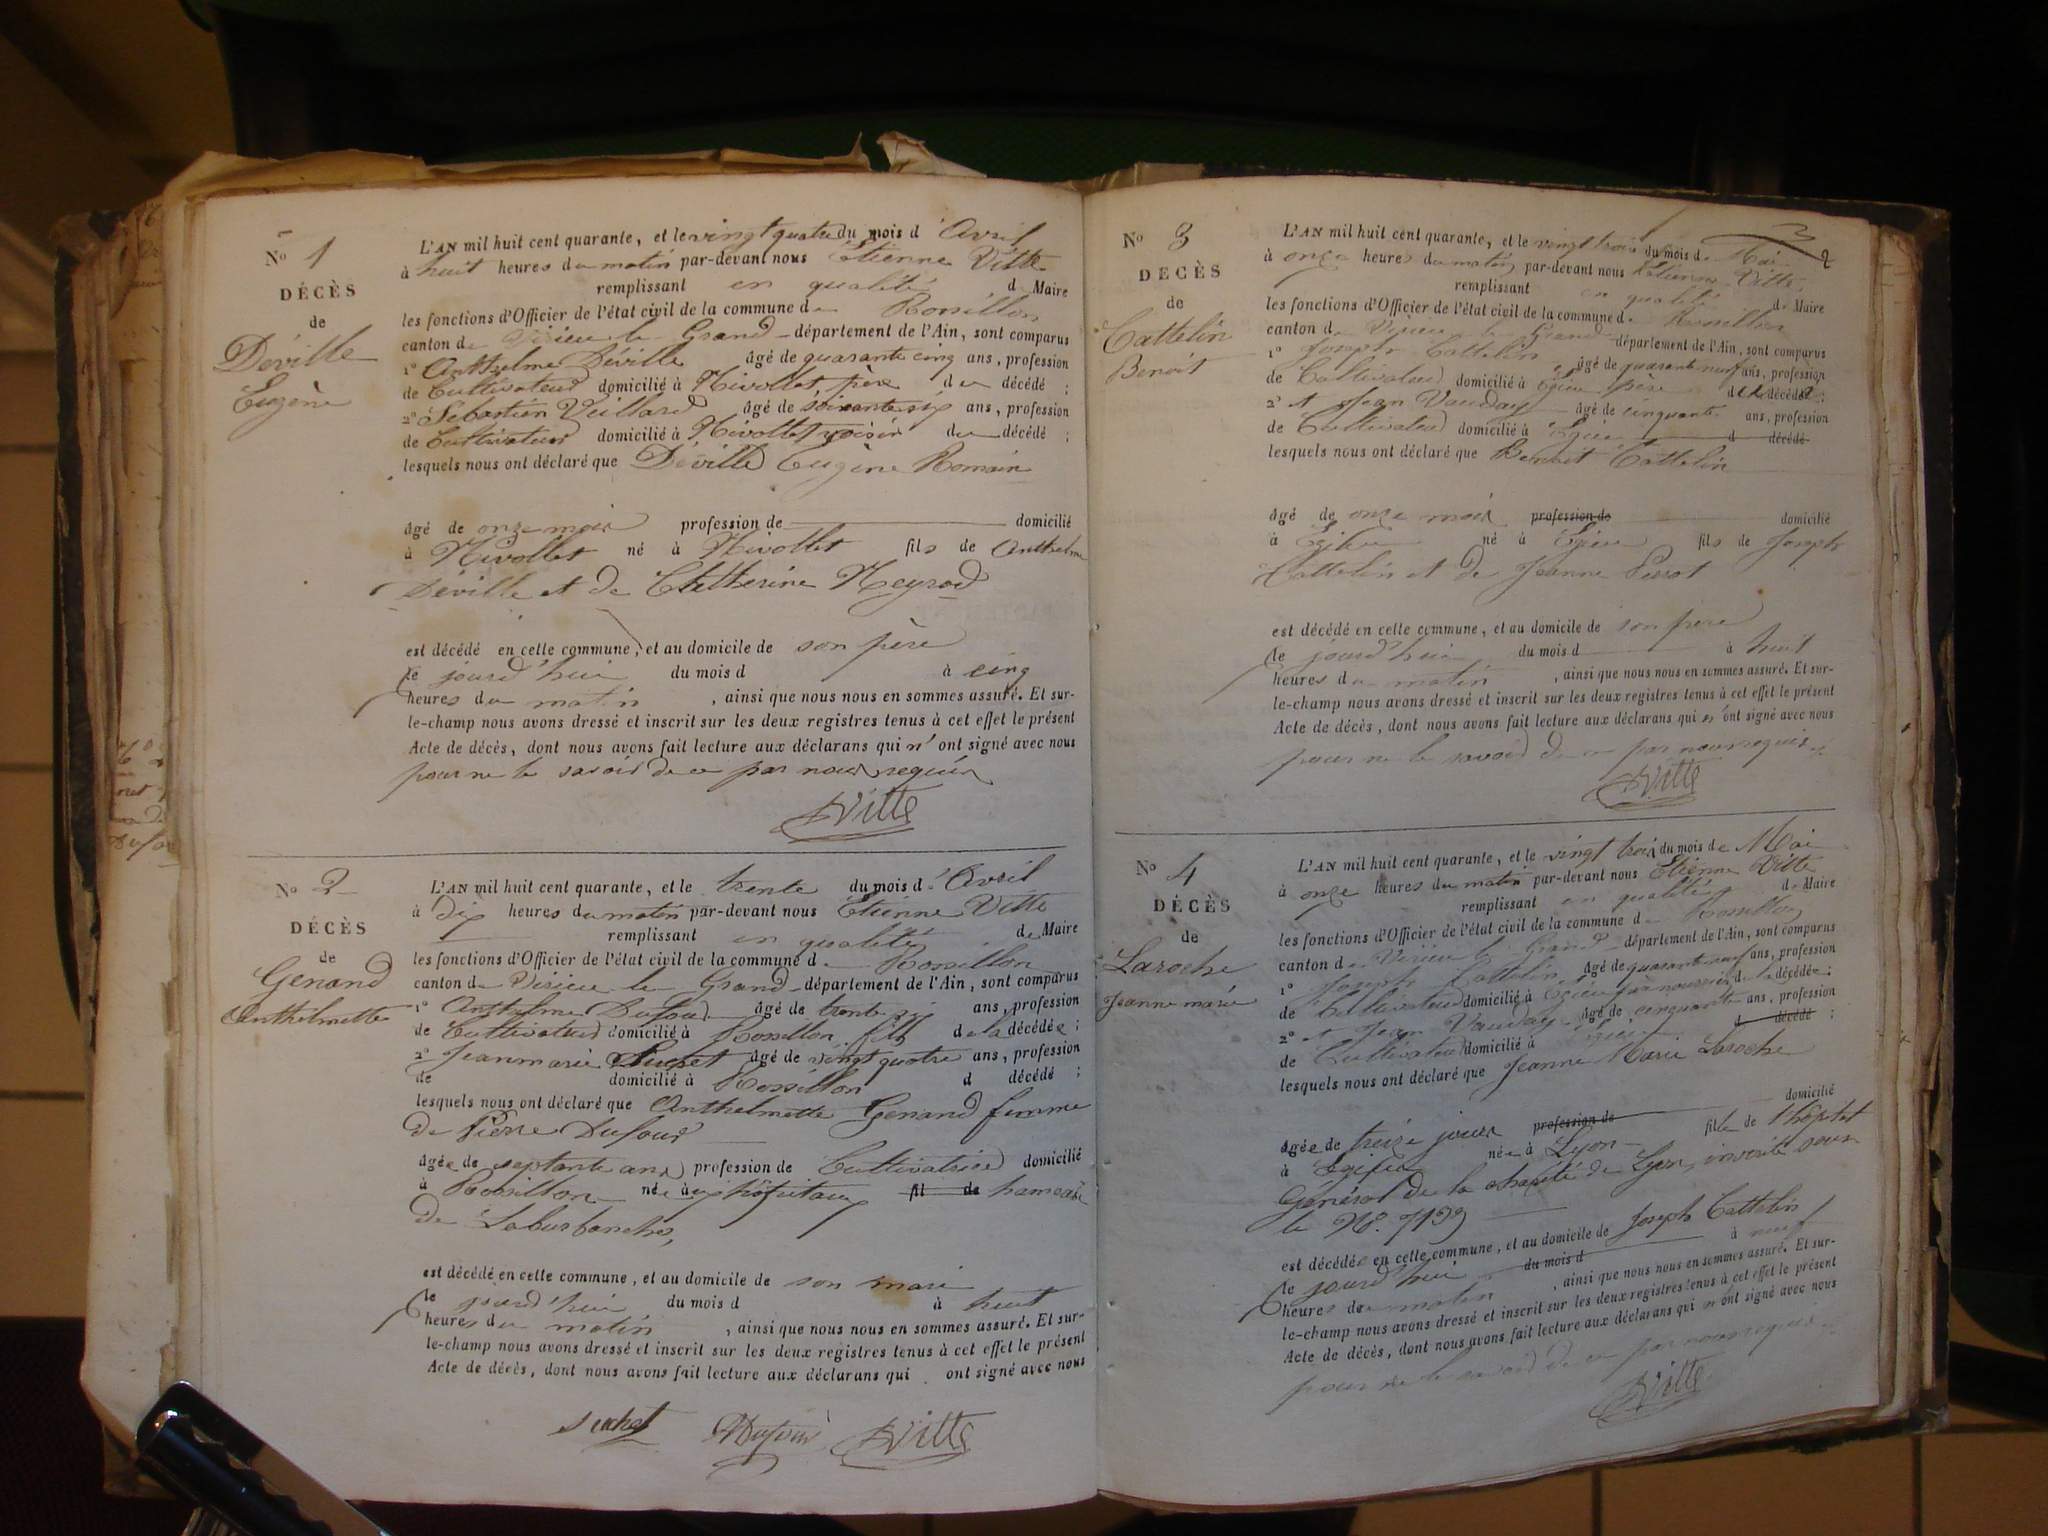 No 1
DÉCÈS
de
Déville
Eugène
L'AN mil huit cent quarante, et le vingt quatre du mois d'Avril
à huit heures du matin par-devant nous Etienne Vitte
remplissant en qualité de Maire
les fonctions d'Officier de l'état civil de la commune de Rossillon
canton de Virieu le Grand département de l'Ain, sont comparus
1o Anthelme Déville âgé de quarante cinq ans, profession
de Cultivateur domicilié à Nivollet père du décédé ;
2o Sébastien Veillard âgé de soixante six ans, profession
de Cultivateur domicilié à Nivollet voisin du décédé ;
lesquels nous ont déclaré que Déville Eugène Romain
âgé de onze mois profession de domicilié
à Nivollet né à Nivollet fils de Anthelme
Déville et de Cletherine Neyrod
est décédé en cette commune, et au domicile de son père
le jourd'hui du mois d à cinq
heures du matin , ainsi que nous nous en sommes assuré. Et sur-
le-champ nous avons dressé et inscrit sur les deux registres tenus à cet effet le présent
Acte de décès, dont nous avons fait lecture aux déclarans qui n'ont signé avec nous
pour ne le savoir de ce par nous requis
Vitte
No 2
DÉCÈS
de
Genand
Anthelmette
L'AN mil huit cent quarante, et le trente du mois d'Avril
à dix heures du matin par-devant nous Etienne Vitte
remplissant en qualité de Maire
les fonctions d'Officier de l'état civil de la commune de Rossillon
canton de Virieu le Grand département de l'Ain, sont comparus
1o Anthelme Dufour âgé de trente six ans, profession
de Cultivateur domicilié à Rossillon fils de la décédée ;
2o Jeanmarie Suchet âgé de vingt quatre ans, profession
de domicilié à Rossillon d décédé ;
lesquels nous ont déclaré que Anthelmette Genand femme
de Pierre Dufour
âgée de septante ans profession de Cultivatrice domicilié
à Rossillon née aux hôpitaux fil de hameau
de Laburbanche,
est décédé en cette commune, et au domicile de son mari
le jourd'hui du mois d à huit
heures du matin , ainsi que nous nous en sommes assuré. Et sur-
le-champ nous avons dressé et inscrit sur les deux registres tenus à cet effet le présent
Acte de décès, dont nous avons fait lecture aux déclarans qui ont signé avec nous
suchet Dufour Vitte
3
2
No 3
DÉCÈS
de
Cattelin
Benoit
L'AN mil huit cent quarante, et le vingt trois du mois de Mai
à onze heures du matin par-devant nous Etienne Vitte
remplissant en qualité de Maire
les fonctions d'Officier de l'état civil de la commune de Rossillon
canton de Virieu le Grand département de l'Ain, sont comparus
1o Joseph Cattelin âgé de quarante neuf ans, profession
de Cultivateur domicilié à Egieu père du décédé ;
2o et Jean Vauday âgé de cinquante ans, profession
de Cultivateur domicilié à Egieu d décédé
lesquels nous ont déclaré que Benoit Cattelin
âgé de onze mois profession de domicilié
à Egieu né à Egieu fils de Joseph
Cattelin et de Jeanne Perrot
est décédé en cette commune, et au domicile de son père
le jourd'hui du mois d à huit
heures du matin , ainsi que nous nous en sommes assuré. Et sur-
le-champ nous avons dressé et inscrit sur les deux registres tenus à cet effet le présent
Acte de décès, dont nous avons fait lecture aux déclarans qui n'ont signé avec nous
pour ne le savoir de ce par nous requis
Vitte
No 4
DÉCÈS
de
Laroche
Jeanne marie
L'AN mil huit cent quarante, et le vingt trois du mois de Mai
à onze heures du matin par-devant nous Etienne Vitte
remplissant en qualité de Maire
les fonctions d'Officier de l'état civil de la commune de Rossillon
canton de Virieu le Grand département de l'Ain, sont comparus
1o Joseph Cattelin âgé de quarante neuf ans, profession
de Cultivateur domicilié à Egieu père nourricier de la décédée ;
2o et Jean Vauday âgé de cinquante ans, profession
de Cultivateur domicilié à Egieu d décédé ;
lesquels nous ont déclaré que Jeanne Marie Laroche
âgée de treize jours profession de domicilié
à Egieu née à Lyon fille de l'hôpital
Général de la charité de Lyon, inscrite sous
le No.
est décédée en cette commune, et au domicile de Joseph Cattelin
le jourd'hui du mois d à neuf
heures du matin , ainsi que nous nous en sommes assuré. Et sur-
le-champ nous avons dressé et inscrit sur les deux registres tenus à cet effet le présent
Acte de décès, dont nous avons fait lecture aux déclarans qui n'ont signé avec nous
pour ne le savoir de ce par nous requis
Vitte